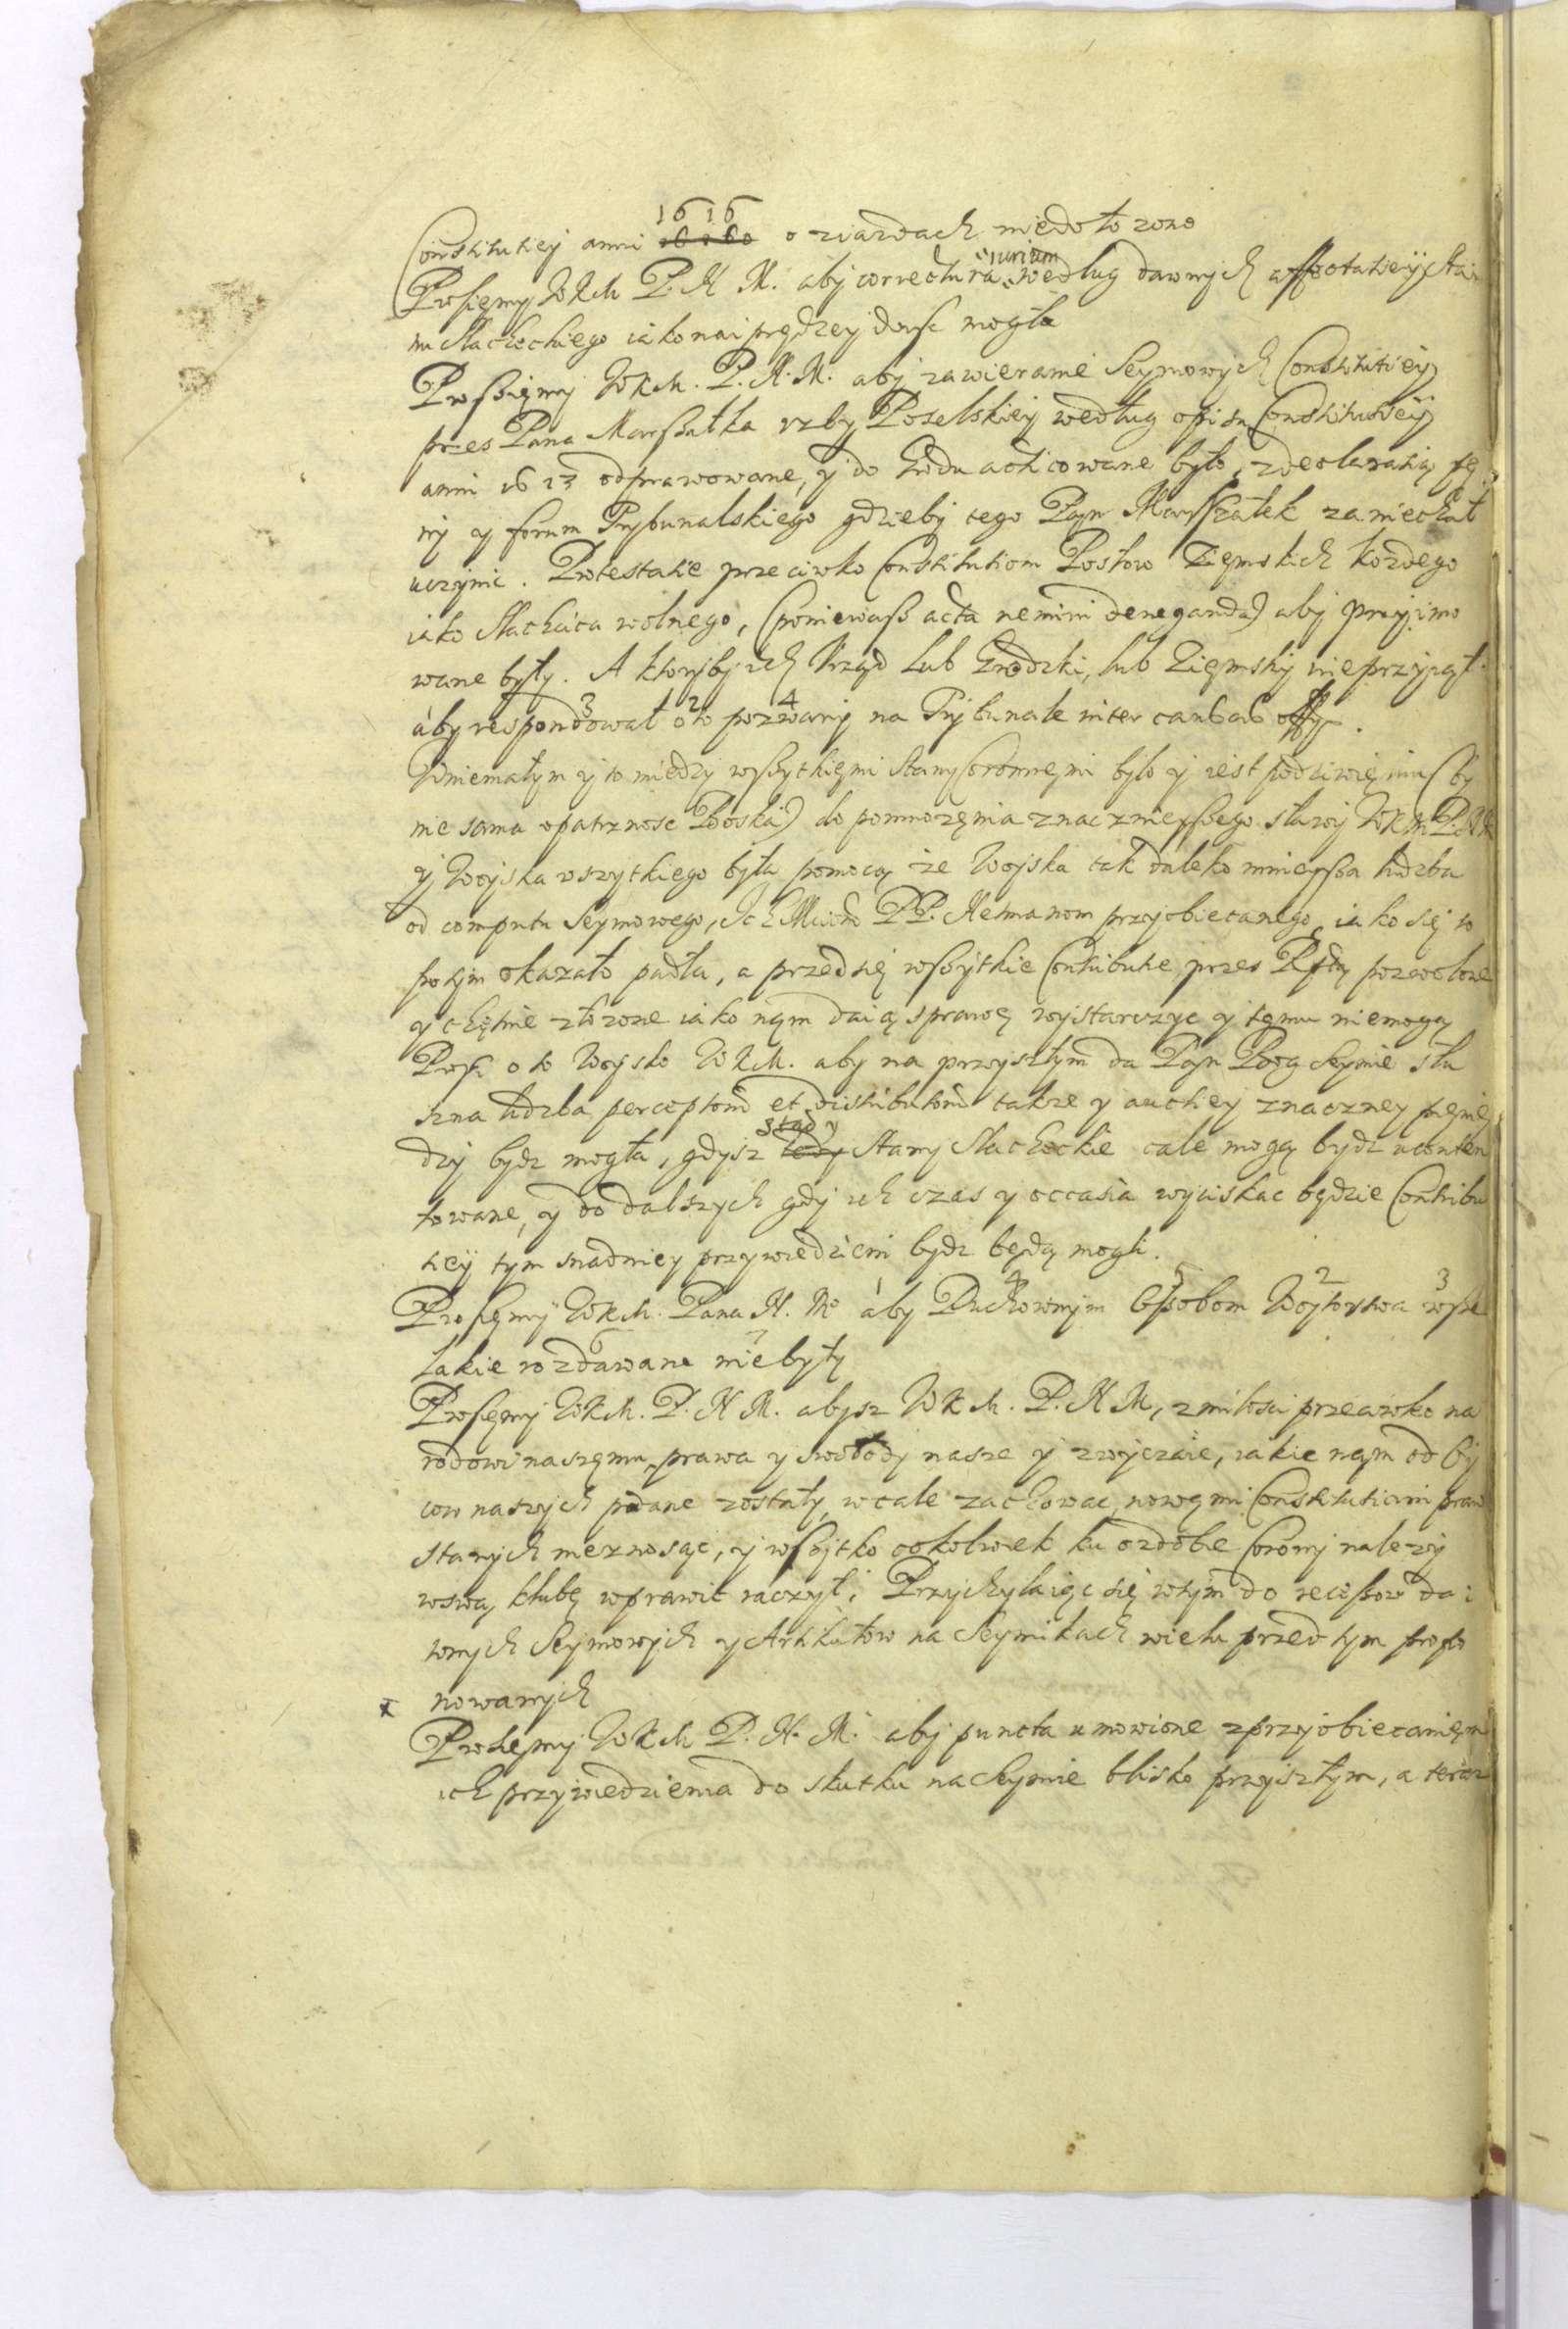 1616
Constitutiej anni o ziazdach niedołozono
iurium
Prosięmy WKM P. N. M. abj correctura według dawnych affectatiey sta
nu slacheckiego iako naiprędzey dośc mogła
Prossięmy WKM. P. N. M. abj zawieranie Seymowych Constitutiey
przes Pana Marssałka yzby Poselskiey według opisu Constitutiey
anni 1613 odprawowane, y do Grodu acticowane było, z declaratią pę
ny y forum Trybunalskiego gdzieby tego Pan Marsszałek zaniechał
uczynic. Protestatie przeciwko Constitutiom Posłow Zięmskich kozdego
iako slachcica wolnego, (poniewasz acta nemini deneganda) abj przyimo
wane były. A ktorybj ich Vrząd lub Grodzki, lub Zięmsky nieprzyiął
3 2 4
aby respondował o to pozwany na Trybunale inter causas
Vniemałym y to między wssytkięmi stany Coronnęmi było y iest podziwięniu (by
nie sama opatrznosc Boska) do pomnozęnia znacznieyssego sławy WKM P. N M
y Woyska wszytkiego była pomocą ze Woyska tak daleko mnieyssa liczba
od computu Seymowego, Ich Mciom PP. Hetmanom przyobiecanego, iako się to
potym okazało padła, a przedsię wssytkie Contributie przes Rptą pozwolone
y chętnie złozone iako nąm daią sprawę wystarczyc y tęmu niemogą
Prosi o to Woysko WKM. aby na przyszłym da Pąn Bog Seymie słu
szna liczba perceptorum et distributorum takze y auchey znaczney pięnię
stąd y
dzy bydz mogła, gdysz tedy stany slacheckie cale mogą bydz uconten
towane, y do dalszych gdy ich czas y occasia wyciskac będzie Contribu
tiey tym snadniey przywiedzieni bydz będą mogli.
1 4 5 2 3
Prosięmy WKM. Pana N. Mo aby Duchownym Osobom Woytostwa wsze
6 7
lakie rozdawane niebyły
Prosięmy WKM. P. N M. abysz WKM. P. N M, z miłosci przeciwko na
rodowi naszęmu, prawa y swobody nasze y zwyczaie, iakie nąm od Oy
cow naszych podane zostały, w cale zachowac, nowęmi Constitutiami praw
starych nieznosząc, y wssytko cokolwiek ku ozdobie Corony nalezy
wswą klubę wprawic raczył, Przychylaiąc się wtym do recessow da
wnych Seymowych y Artikułow na Seymikach wielu przed tym propo
nowanych
Prosięmy WKM P. N. M. abj puncta umowione z przyobiecanięm
ich przywiedzienia do skutku na Seymie blisko przyszłym, a teraz